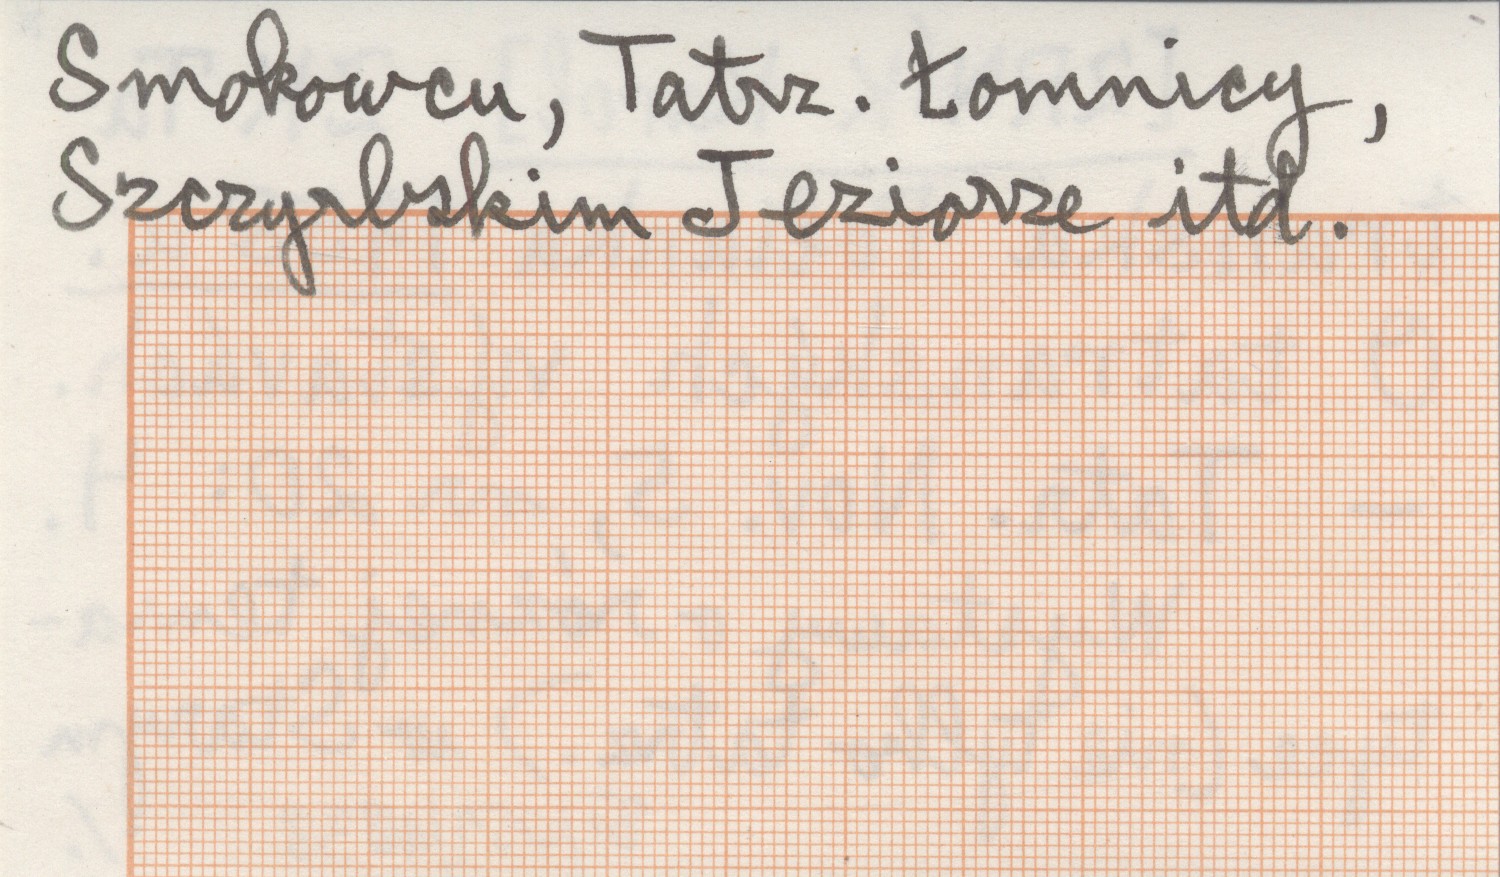 Smokowcu, Tatrz. Łomnicy,
Szczyrbskim Jeziorze itd.